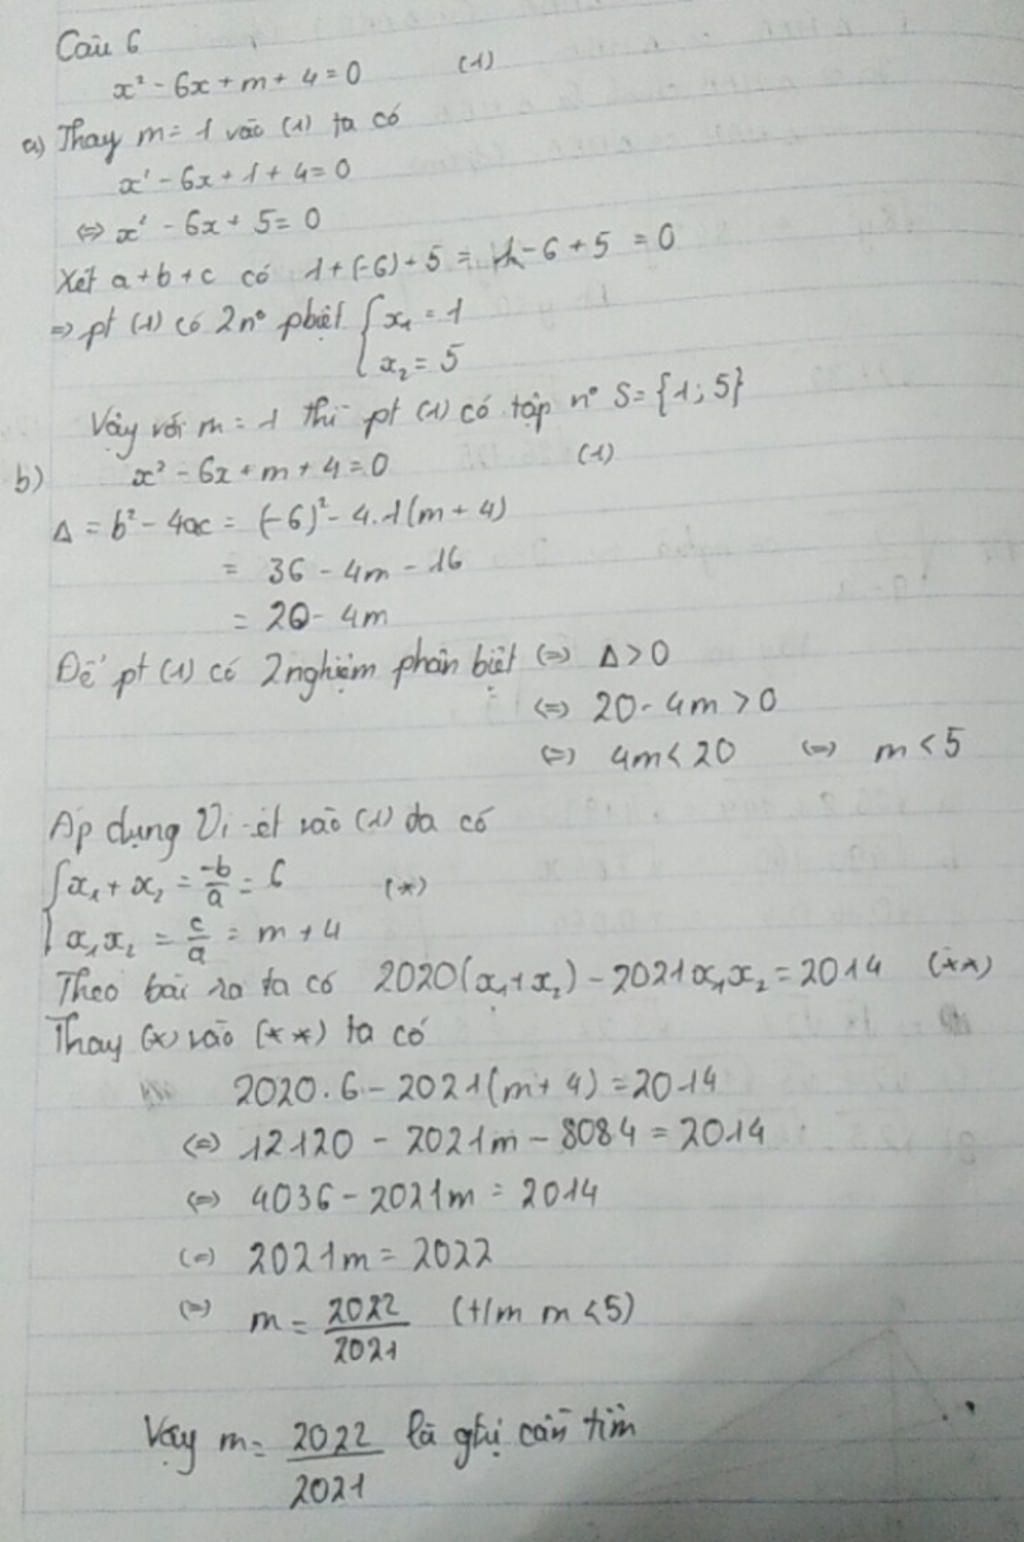 Câu 6
x² - 6x + m + 4 = 0 (1)
a) Thay m = 1 vào (1) ta có
x² - 6x + 1 + 4 = 0
⇔ x² - 6x + 5 = 0
Xét a + b + c có 1 + (-6) + 5 = 1 - 6 + 5 = 0
⇒ pt (1) có 2 n° pbiệt { x₁ = 1
x₂ = 5
Vậy với m = 1 thì pt (1) có tập n° S = {1; 5}
b) x² - 6x + m + 4 = 0 (1)
Δ = b² - 4ac = (-6)² - 4.1(m + 4)
= 36 - 4m - 16
= 20 - 4m
Để pt (1) có 2 nghiệm phân biệt (=) Δ > 0
(=) 20 - 4m > 0
(=) 4m < 20 (=) m < 5
Áp dụng Vi-ét vào (1) ta có
{ x₁ + x₂ = -b/a = 6 (*)
x₁x₂ = c/a = m + 4
Theo bài ra ta có 2020(x₁ + x₂) - 2021x₁x₂ = 2014 (**)
Thay (*) vào (**) ta có
2020.6 - 2021(m + 4) = 2014
(=) 12120 - 2021m - 8084 = 2014
(=) 4036 - 2021m = 2014
(=) 2021m = 2022
(=) m = 2022/2021 (t/m m < 5)
Vậy m = 2022/2021 là gtrị cần tìm